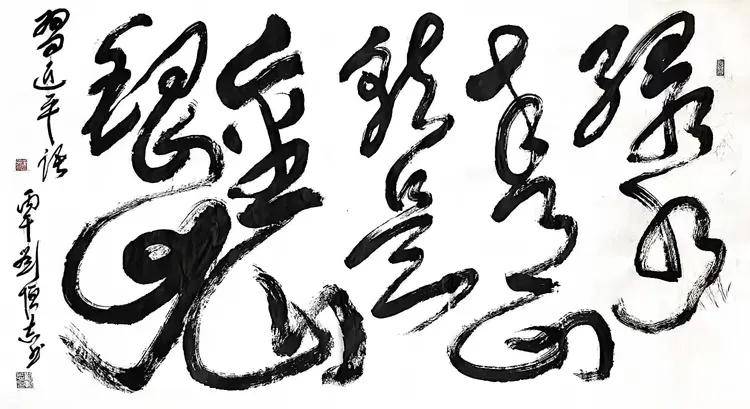 绿水
青山
就是
金山
银山
習近平语
丙午劉恒志书